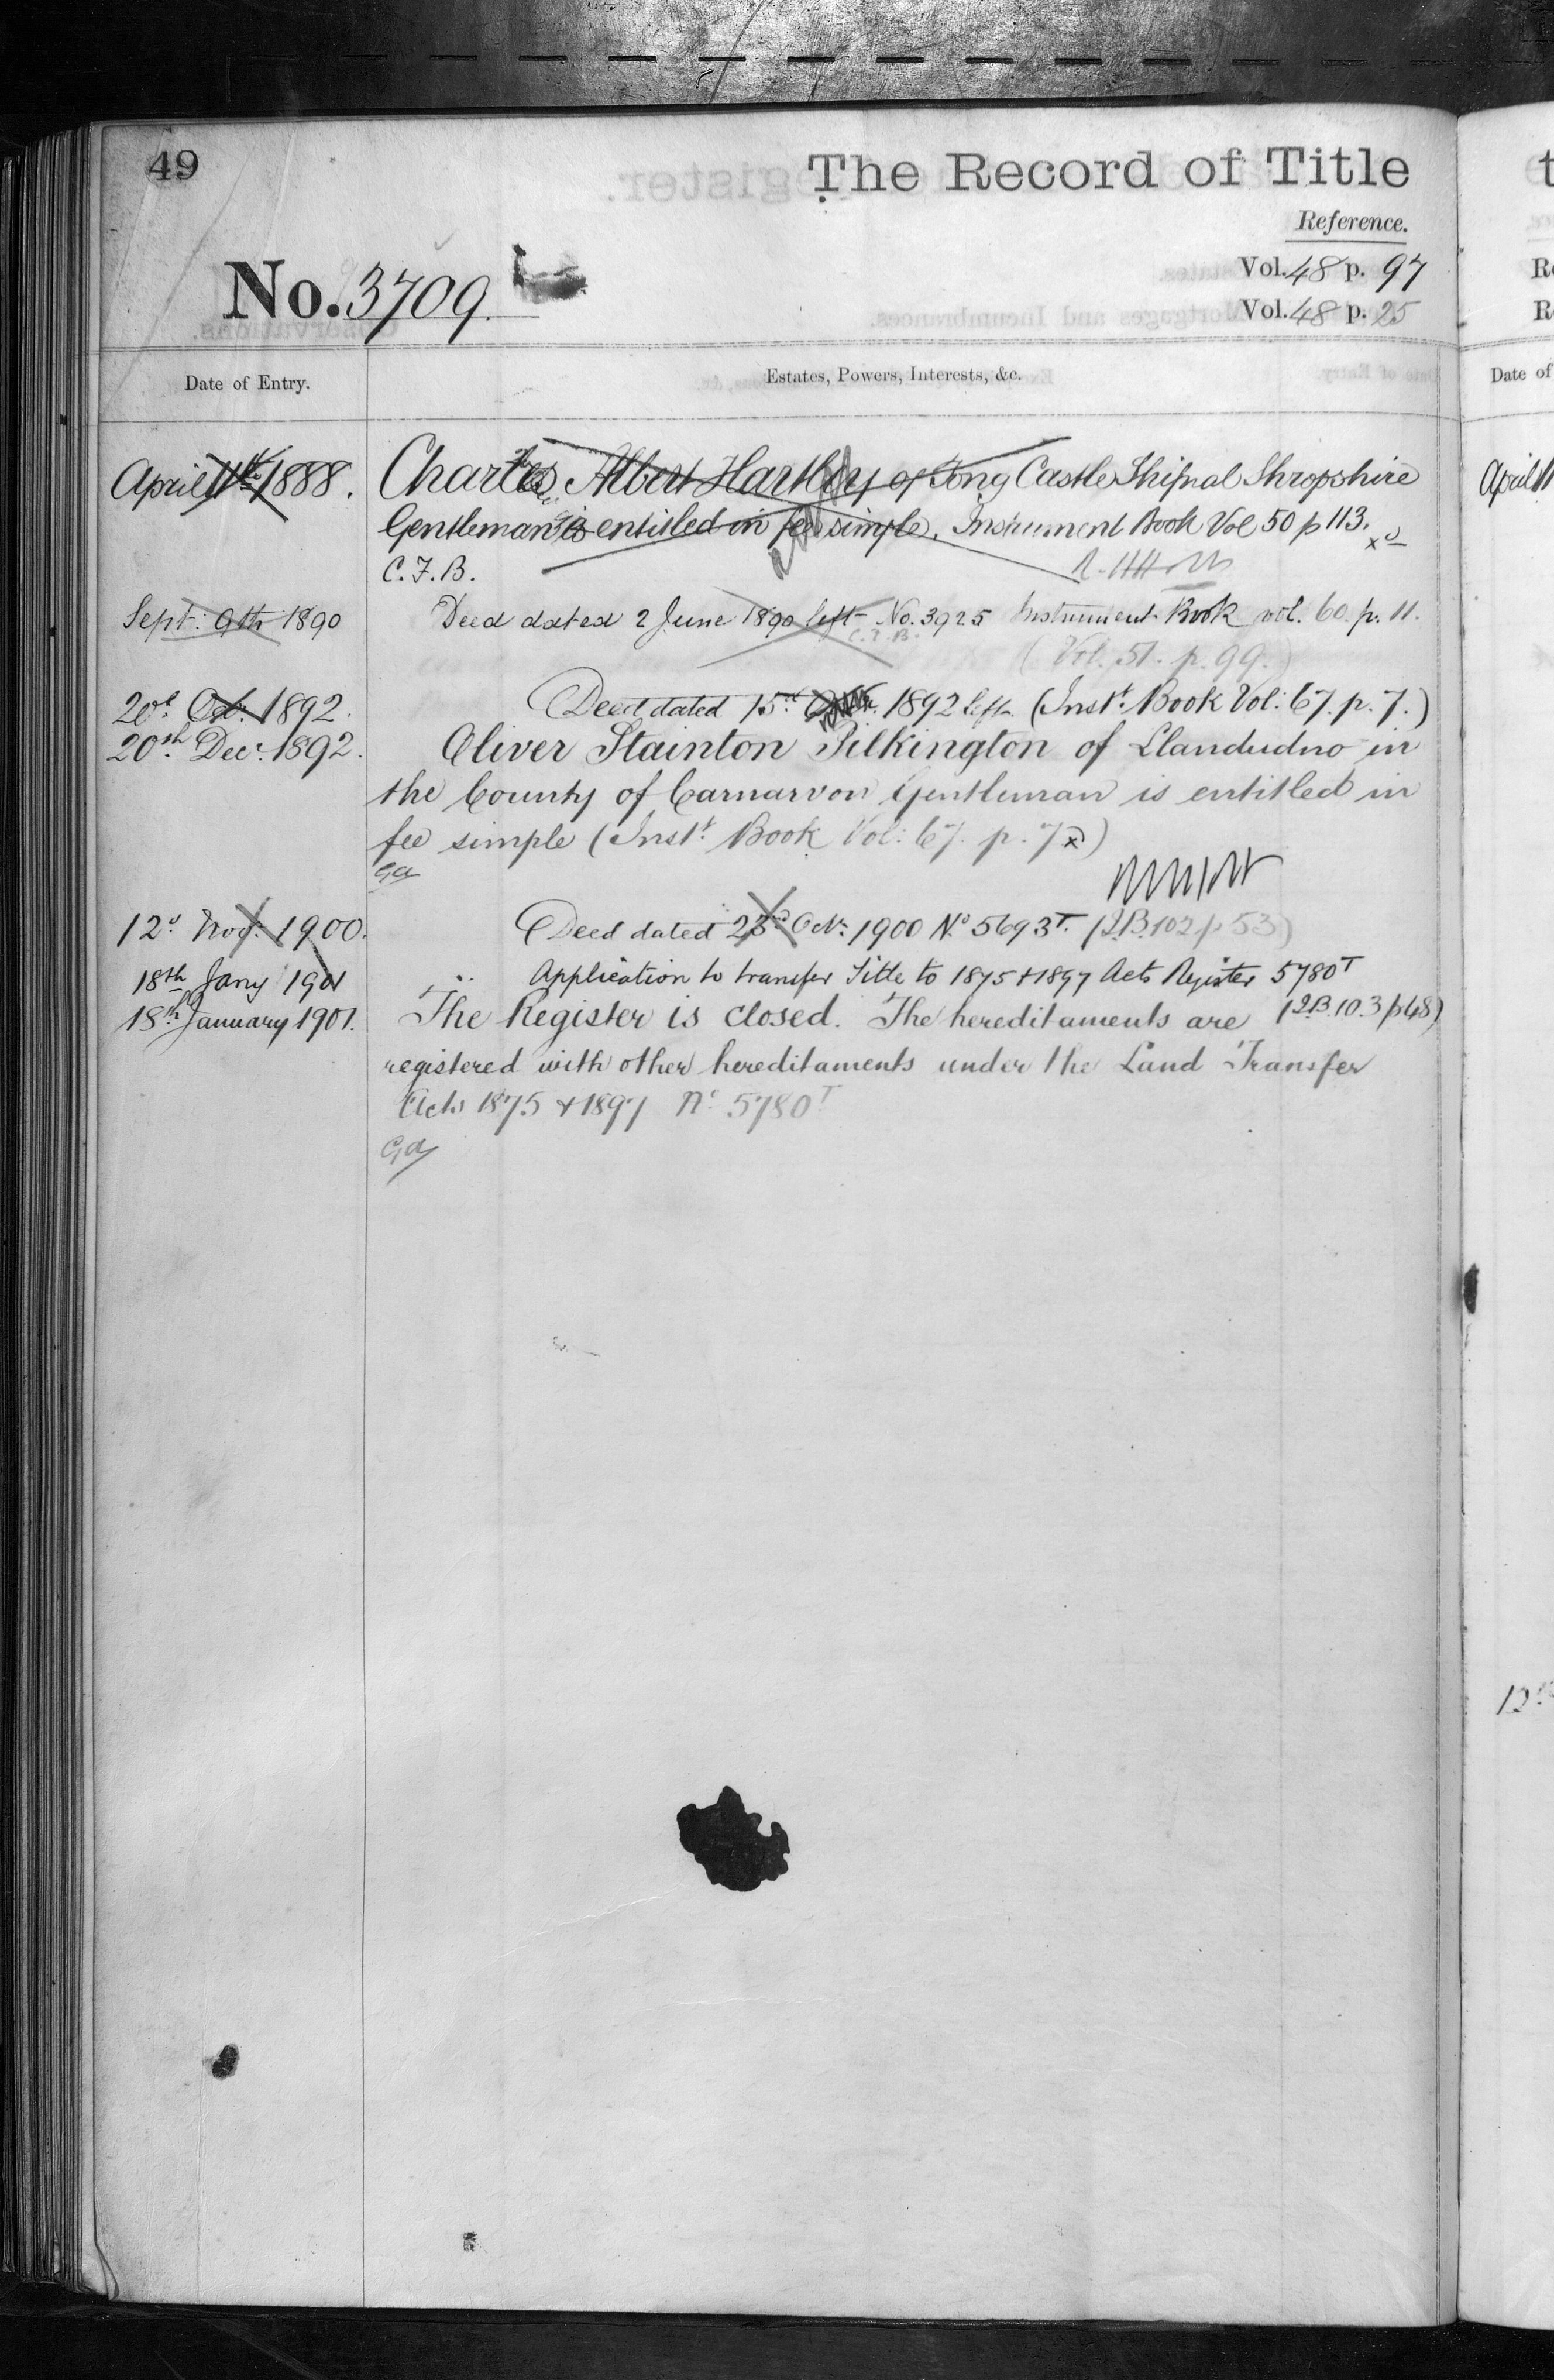 49
The Record of Title
Reference.
Vol. 48 p. 97
No. 3709.
Vol. 48 p. 25
Date of Entry.
Estates, Powers, Interests, &c.
Date of
April 11th 1888. Charles Albert Hartley of Tong Castle Shifnal Shropshire
April 11
Gentleman is entitled in fee simple. Instrument Book Vol 50 p 113.
C.F.B.
Sept: 9th 1890 Deed dated 2 June 1890 left No. 3925 Instrument Book vol. 60. p. 11.
C.F.B.
(Vol. 51. p. 99.)
20th Oct: 1892. Deed dated 15th 1892 left (Inst. Book Vol: 67. p. 7.)
20th Decr. 1892. Oliver Stainton Pilkington of Llandudno in
the County of Carnarvon Gentleman is entitled in
fee simple (Inst. Book Vol: 67. p. 7 x)
Ga
12th Nov: 1900. Deed dated 23rd Oct: 1900 No. 5693T. (I.B. 102 p 53)
18th Jany 1901 Application to transfer Title to 1875 & 1897 Acts Register 5780T
18th January 1901. The Register is closed. The hereditaments are (I.B. 103 p 48)
registered with other hereditaments under the Land Transfer
Acts 1875 & 1897 No. 5780T
Ga
12